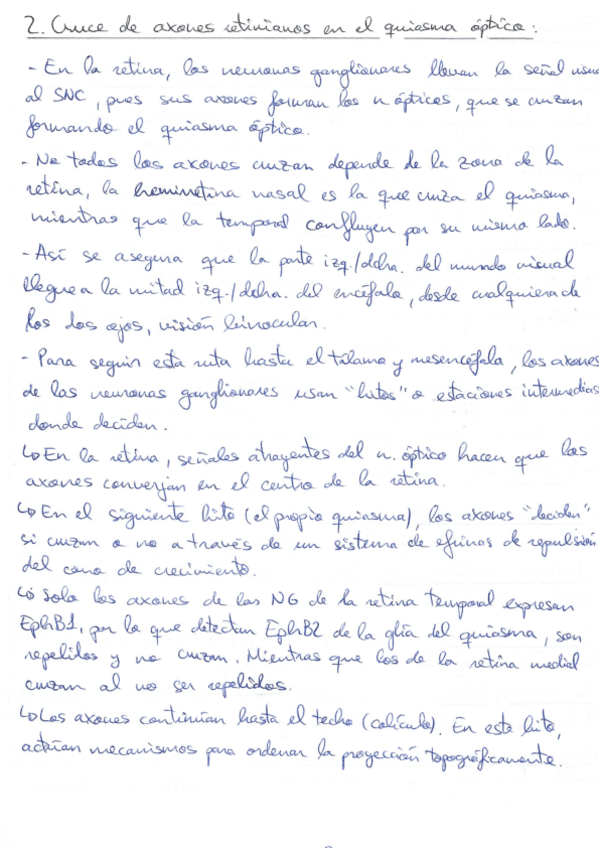 2. Cruce de axones retinianos en el quiasma óptico:
- En la retina, las neuronas ganglionares llevan la señal visu
al SNC, pues sus axones forman los n ópticos, que se cruzan
formando el quiasma óptico.
- No todos los axones cruzan depende de la zona de la
retina, la hemirretina nasal es la que cruza el quiasma,
mientras que la temporal confluyen por su mismo lado.
- Así se asegura que la parte izq./dcha. del mundo visual
llegue a la mitad izq./dcha. del encéfalo, desde cualquiera de
los dos ojos, visión binocular.
- Para seguir esta ruta hasta el tálamo y mesencéfalo, los axones
de las neuronas ganglionares usan "hitos" o estaciones intermedias
donde deciden.
↳ En la retina, señales atrayentes del n. óptico hacen que los
axones converjan en el centro de la retina.
↳ En el siguiente hito (el propio quiasma), los axones "deciden"
si cruzan o no a través de un sistema de efrinas de repulsión
del cono de crecimiento.
↳ Solo los axones de las NG de la retina temporal expresan
EphB1, por lo que detectan EphB2 de la glía del quiasma, son
repelidos y no cruzan. Mientras que los de la retina medial
cruzan al no ser repelidos.
↳ Los axones continúan hasta el techo (colículo). En este hito,
actúan mecanismos para ordenar la proyección topográficamente.